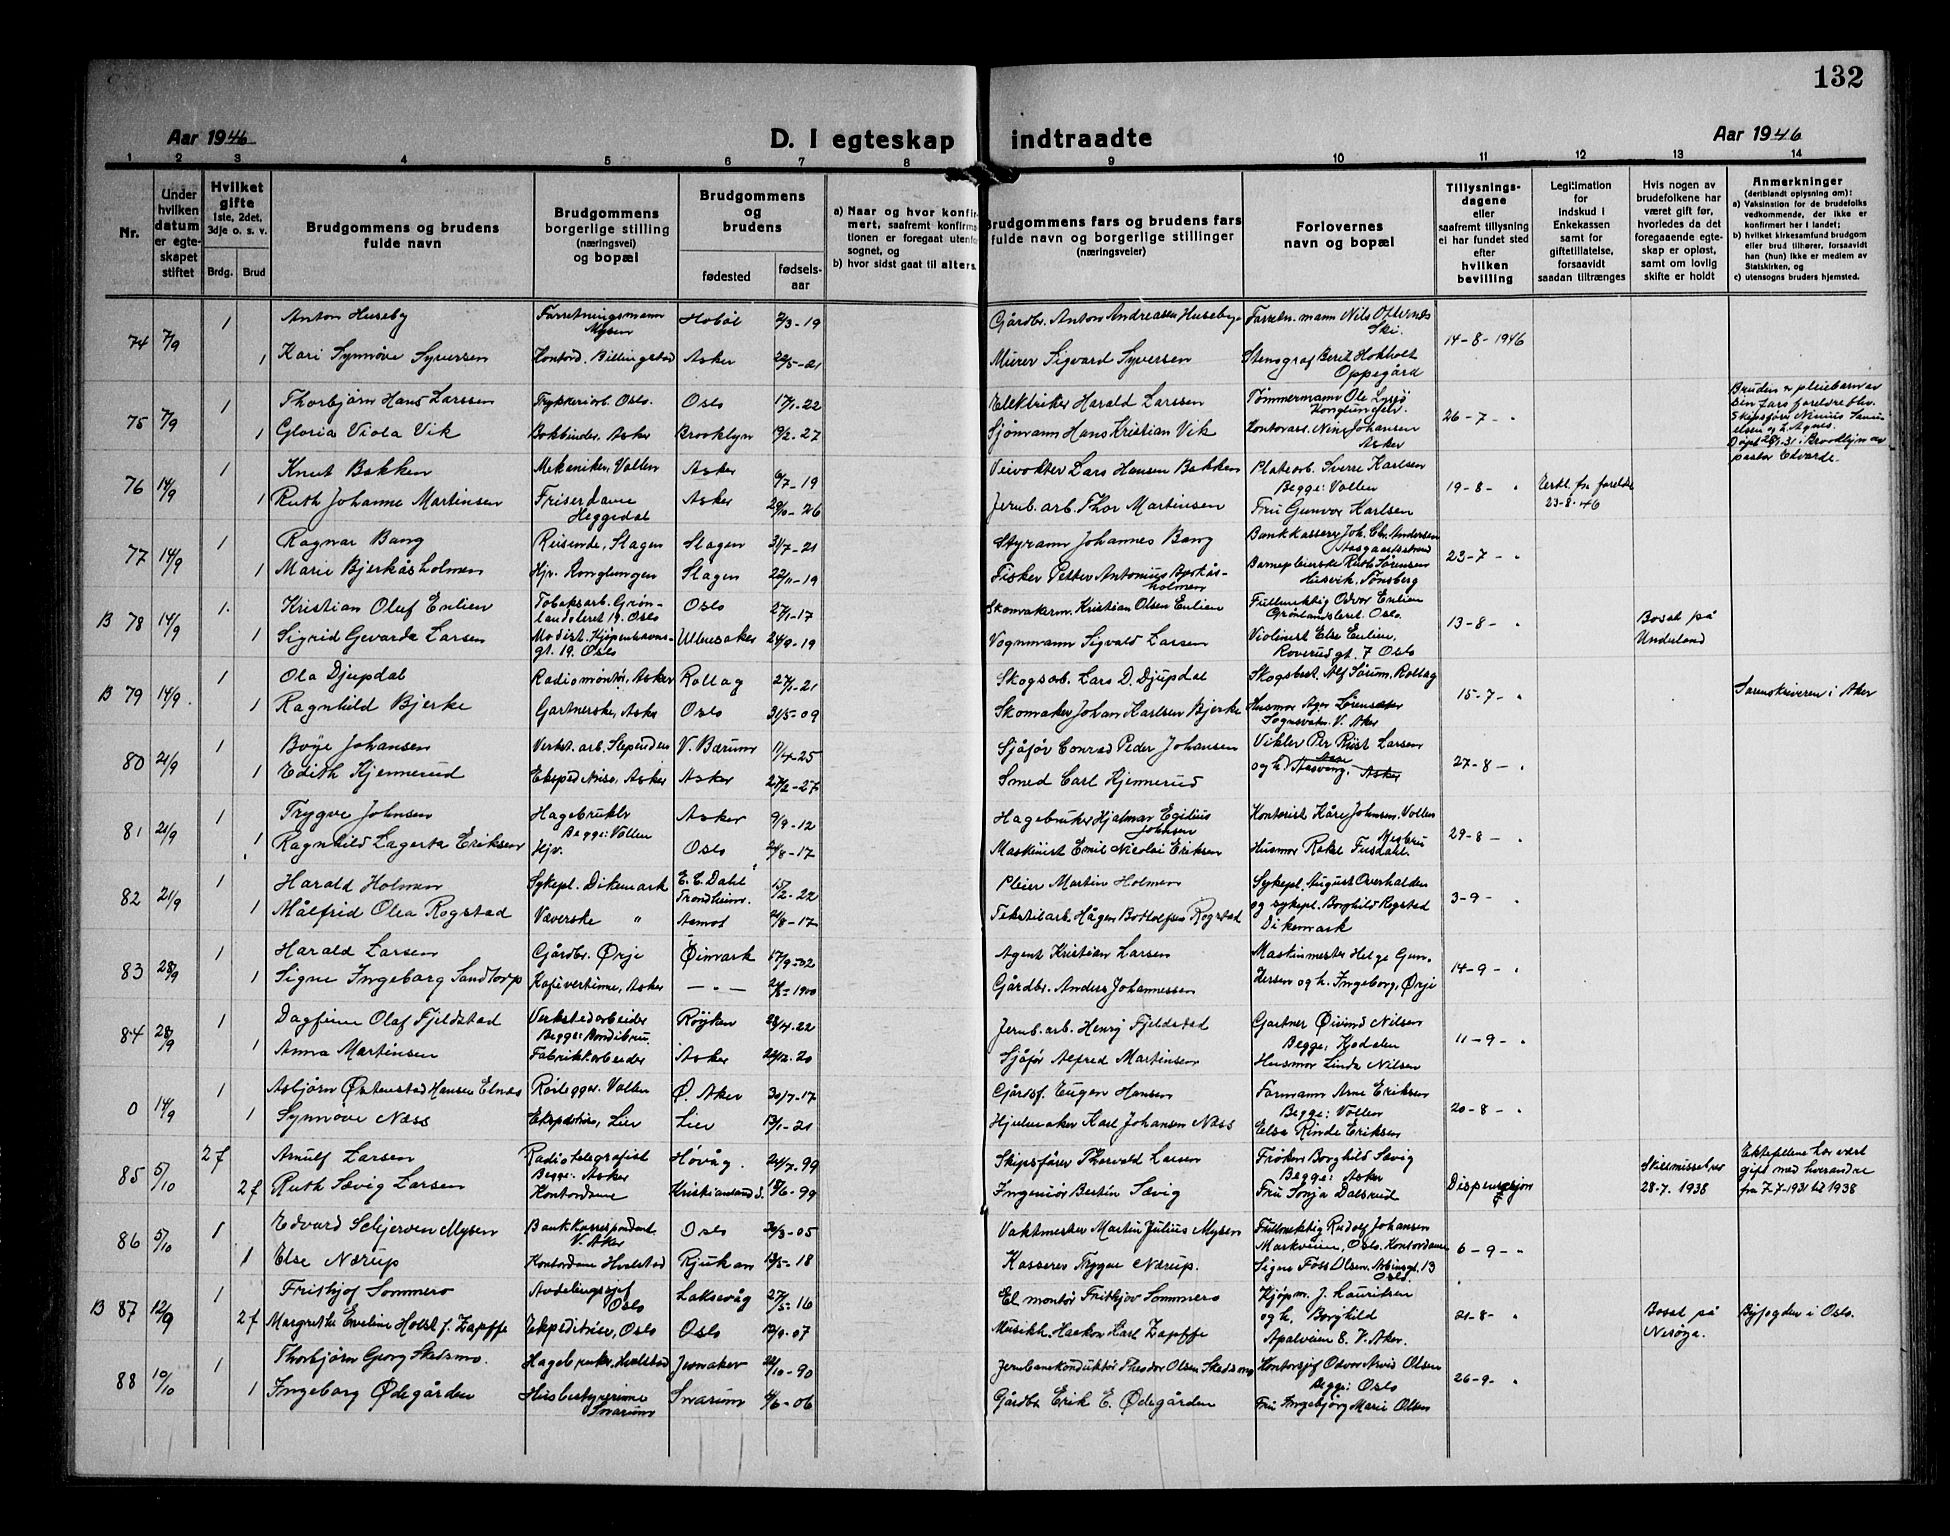 132
Aar 1946
D. I egteskap indtraadte
Aar 1946
1 2 3 4 5 6 7 8 9 10 11 12 13 14
Nr.
Under hvilken datum er egteskapet stiftet
Hvilket gifte 1ste, 2det, 3dje o. s. v.
Brdg. Brud
Brudgommens og brudens fulde navn
Brudgommens borgerlige stilling (næringsvei) og bopæl
Brudgommens og brudens
fødested
fødselsaar
a) Naar og hvor konfirmert, saafremt konfirmationen er foregaat utenfor sognet, og
b) hvor sidst gaat til alters.
Brudgommens fars og brudens fars fulde navn og borgerlige stillinger (næringsveier)
Forlovernes navn og bopæl
Tillysningsdagene eller saafremt tillysning ei har fundet sted efter hvilken bevilling
Legitimation for indskud i Enkekassen samt for giftetillatelse, forsaavidt saadan tiltrænges
Hvis nogen av brudefolkene har været gift før, hvorledes da det foregaaende egteskap er opløst, samt om lovlig skifte er holdt
Anmerkninger (deriblandt oplysning om):
a) Vaksination for de brudefolks vedkommende, der ikke er konfirmert her i landet;
b) hvilket kirkesamfund brudgom eller brud tilhører, forsaavidt han (hun) ikke er medlem av Statskirken, og
c) utensogns bruders hjemsted.
74 7/9 1 Anton Huseby Forretningsmann Mysen Hobøl 2/3-19 Gårdbr. Anton Andreassen Huseby Forretn. mann Nils Ski. 14-8-1946
1 Kari Synnøve Syversen Kontord. Billingstad Asker 22/5-21 Murer Sigvard Syversen Stenograf Berit Hokholt Oppegård
75 7/9 1 Thorbjørn Hans Larssen Trykkeriarb. Oslo. Oslo 17/1-22 Elektriker Harald Larssen Tømmermann Ole 26-7- "
1 Gloria Viola Vik Bokbinder. Asker Brooklyn 19/2-27 Sjømann Hans Kristian Vik Kontorass. Johansen Asker
Bruden er pleiebarn av
Skipsfører
Døpt i Brooklyn av
pastor Edvarde.
76 14/9 1 Knut Bakken Mekaniker, Vollen Asker 9/7-19 Veivokter Lars Hansen Bakken Platearb. Sverre Karlsen Begge: Vollen 19-8- " 23-8-46
1 Ruth Johanne Martinsen Friserdame Heggedal Asker 29/10-26 Jernb. arb. Thor Martinsen Fru Gunvor Karlsen
77 14/9 1 Ragnar Bang Reisende, Slagen Slagen 31/7-21 Styrmann Johannes Bang Bankkasserer Joh. Chr. Andersen Aasgaardstrand 23-7- "
1 Marie Bjerkåsholmen Hjv. Konglungen Slagen 22/11-19 Fisker Petter Antonius Bjerkåsholmen Barnepleierske Ruth Sørensen Husvik. Tønsberg
B 78 14/9 1 Kristian Oluf Enlien Tobaksarb. Grønlandsleret 19. Oslo Oslo 27/1-17 Skomakerm. Kristian Olsen Enlien Fullmektig Odvor Enlien Grønlandsleret. Oslo. 13-8- " Bosat på Underland
1 Sigrid Gevarda Larsen Modist. Kjøpenhavnsgt. 19. Oslo Ullensaker 24/9-19 Vognmann Sigvald Larsen Violinist Else Enlien, Roverudgt. 7 Oslo
B 79 14/9 1 Ola Djupdal Radiomontør, Asker Rollag 27/1-21 Skogsarb. Lars D. Djupdal Skogsbest. Alf Sørum, Rollag 15-7- " Sorenskriveren i Aker
1 Ragnhild Bjerke Gartnerske, Asker Oslo 31/5-09 Skomaker Johan Karlsen Bjerke Husmor Sognsvatn. V. Aker
80 21/9 1 Boye Johansen Verkst. arb. Slependen V. Bærum 11/4-25 Sjåfør Conrad Peder Johansen Vikler Per Riist Larsen 27-8- "
1 Edith Kjennerud Ekspeditrise, Asker Asker 27/2-27 Smed Carl Kjennerud og h. Asker
81 21/9 1 Trygve Johnsen Hagebruker Begge: Vollen Asker 9/9-12 Hagebruker Hjalmar Egilius Johnsen Kontorist Kåre Johnsen. Vollen 29-8- "
1 Ragnhild Lagerta Eriksen Hjv. Oslo 24/8-17 Maskinist Emil Nicolai Eriksen Husmor Rakel Fusdahl.
82 21/9 1 Harald Holmen Sykepl. Dikemark Trondheim. 15/2-22 Pleier Martin Holmen Sykepl. August Overhalden 3-9- "
1 Målfrid Olea Rogstad Væverske " Åsmot 21/8-17 Tekstilarb. Hågen Rogstad og sykepl. Borghild Rogstad Dikemark
83 28/9 1 Harald Larsen Gårdbr. Ørje Øimark 17/9-02 Agent Kristian Larsen Maskinmester Helge Gundersen og h. Ingeborg, Ørje 14-9- "
1 Signe Ingeborg Sandtorp Kafévertinne, Asker - " - 21/8-1900 Gårdbr. Anders Johannessen
84 28/9 1 Dagfinn Olaf Fjeldstad Verkstedarbeider Begge: Bondibru. Røyken 28/4-22 Jernb. arb. Henry Fjeldstad Gartner Øivind Nilsen 11-9- "
1 Anna Martinsen Fabrikkarbeider Asker 22/12-20 Sjåfør Alfred Martinsen Husmor Linda Nilsen
0 14/9 1 Asbjørn Østenstad Hansen Elnes Rørlegger. Vollen Ø. Aker 30/7-17 Gårdsf. Eugen Hansen Formann Arne Eriksen Begge: Vollen 20-8- "
1 Synnøve Næss Ekspeditrise, Lier Lier 13/1-21 Hjulmaker Karl Johansen Næss Else Rinde Eriksen
85 5/10 2 f Arnulf Larsen Radiotelegrafist Begge: Asker Høvåg. 24/7-99 Skipsfører Thorvald Larsen Frøken Borghild Sævig Begge: Asker Dispensasjon Skilsmisse 28-7. 1938
2 f Ruth Sævig Larsen Kontordame Kristiansand S. 18/6-99 Ingeniør Bertin Sævig Fru Sonja Dalsrud
Ektefellene har vært gift med hverandre fra 7-7-1931 til 1938
86 5/10 1 Edvard Schjerven Mysen Bankkorrespondent V. Aker Oslo 20/3-05 Vaktmester Martin Julius Mysen Fullmektig Rudolf Johansen Markveien, Oslo. Kontordame 6-9- "
1 Else Nærup Kontordame Hvalstad Rjukan 13/5-18 Kasserer Trygve Nærup. Signe Foss Olsen, 13 Oslo.
B 87 12/9 1 Frithjof Sommero Avdelingssjef Oslo Laksevåg 27/5-16 El. montør Frithjov Sommero Kjøpm. J. Lauritsen og h. Borghild Apalveien 8. V. Aker. 21-8- " Bosat på Nesøya. Byfogden i Oslo.
2 f Margrethe Eveline Holst f. Zapffe Ekspeditrise, Oslo Oslo 12/9-07 Musikk. Haakon Karl Zapffe
88 10/10 1 Thorbjørn Georg Skedsmo. Hagebruker. Hvalstad Jevnaker 22/10-90 Jernbanekonduktør Theodor Olsen Skedsmo Kontorsjef Odvar Arvid Olsen Begge: Oslo 26-9- "
1 Ingeborg Ødegården Husbestyrerinne Snarum Snarum 4/6-06 Gårdbr. Erik E. Ødegården Fru Ingebjørg Marie Olsen